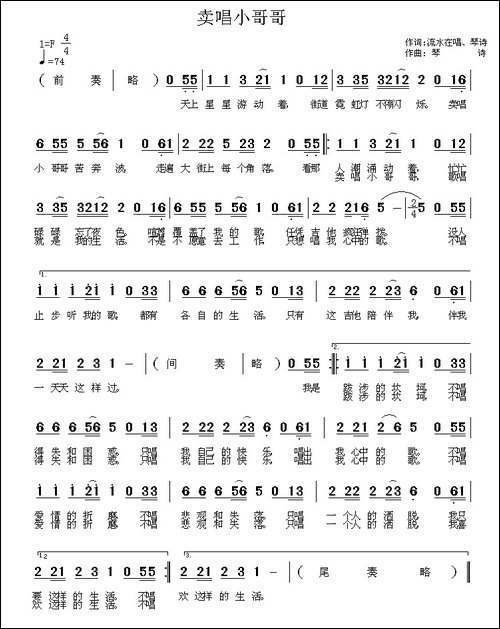 卖唱小哥哥
1=F 4/4
♩=74
作词:流水在唱、琴诗
作曲: 琴 诗
( 前 奏 略 ) 0 55 | 1 1 3 21 1 0 12 | 3 35 3212 2 0 16 |
天上 星 星 游 动 着, 街道 霓 虹灯 不停闪 烁, 卖唱
6 55 5 56 1 0 61 | 2 22 5 23 2 0 55 |: 1 1 3 21 1 0 12 |
小 哥哥 苦 奔 波, 走遍 大 街上 每 个角 落, 看那 人 潮 涌 动 着, 忙忙
卖 唱 小 哥 哥, 歌唱
3 35 3212 2 0 16 | 6 65 5 56 1 0 61 | 2 22 5 61 5 – | 2/4 5 0 55 |
碌 碌 忘了夜 色, 覆 盖了 我 的 歌, 任凭 吉 他 疯狂弹 拨, 没人
就 是 我的生 活, 不是 不 愿意 去 工 作, 只想 唱 我 心中的 歌, 不唱
1.
i i i 2i i 0 55 | 6 6 6 56 5 0 13 | 2 22 2 23 6 0 61 |
止 步 听 我的 歌, 都有 各 自 的 生 活, 只有 这 吉他 陪 伴 我, 伴我
2.
2 21 2 3 1 – | ( 间 奏 略 ) 0 55 :| i i i 2i i 0 33 |
一 天天 这 样 过, 我是 跋 涉 的 坎 坷, 不唱
跋 涉 的 坎 坷, 不唱
6 6 6 56 5 0 13 | 2 22 2 23 6 0 61 | 2 21 2 6 5 0 55 |
得 失 和 困 惑, 只唱 我 自己 的 快 乐, 唱出 我 心中 的 歌, 不唱
得 失 和 困 惑, 只唱 我 自己 的 快 乐, 唱出 我 心中 的 歌, 不唱
i i i 2i i 0 33 | 6 6 6 56 5 0 13 | 2 22 2 23 5 0 61 |
爱 情 的 折 磨, 不唱 悲 观 和 失 落, 只唱 一 个人 的 洒 脱, 我只
爱 情 的 折 磨, 不唱 悲 观 和 失 落, 只唱 一 个人 的 洒 脱, 我喜
1.2. 3.
2 21 2 3 1 0 55 :| 2 21 2 3 1 0 | ( 尾 奏 略 ) ||
要 这样 的 生 活, 不唱 欢 这样 的 生 活,
欢 这样 的 生 活, 不唱